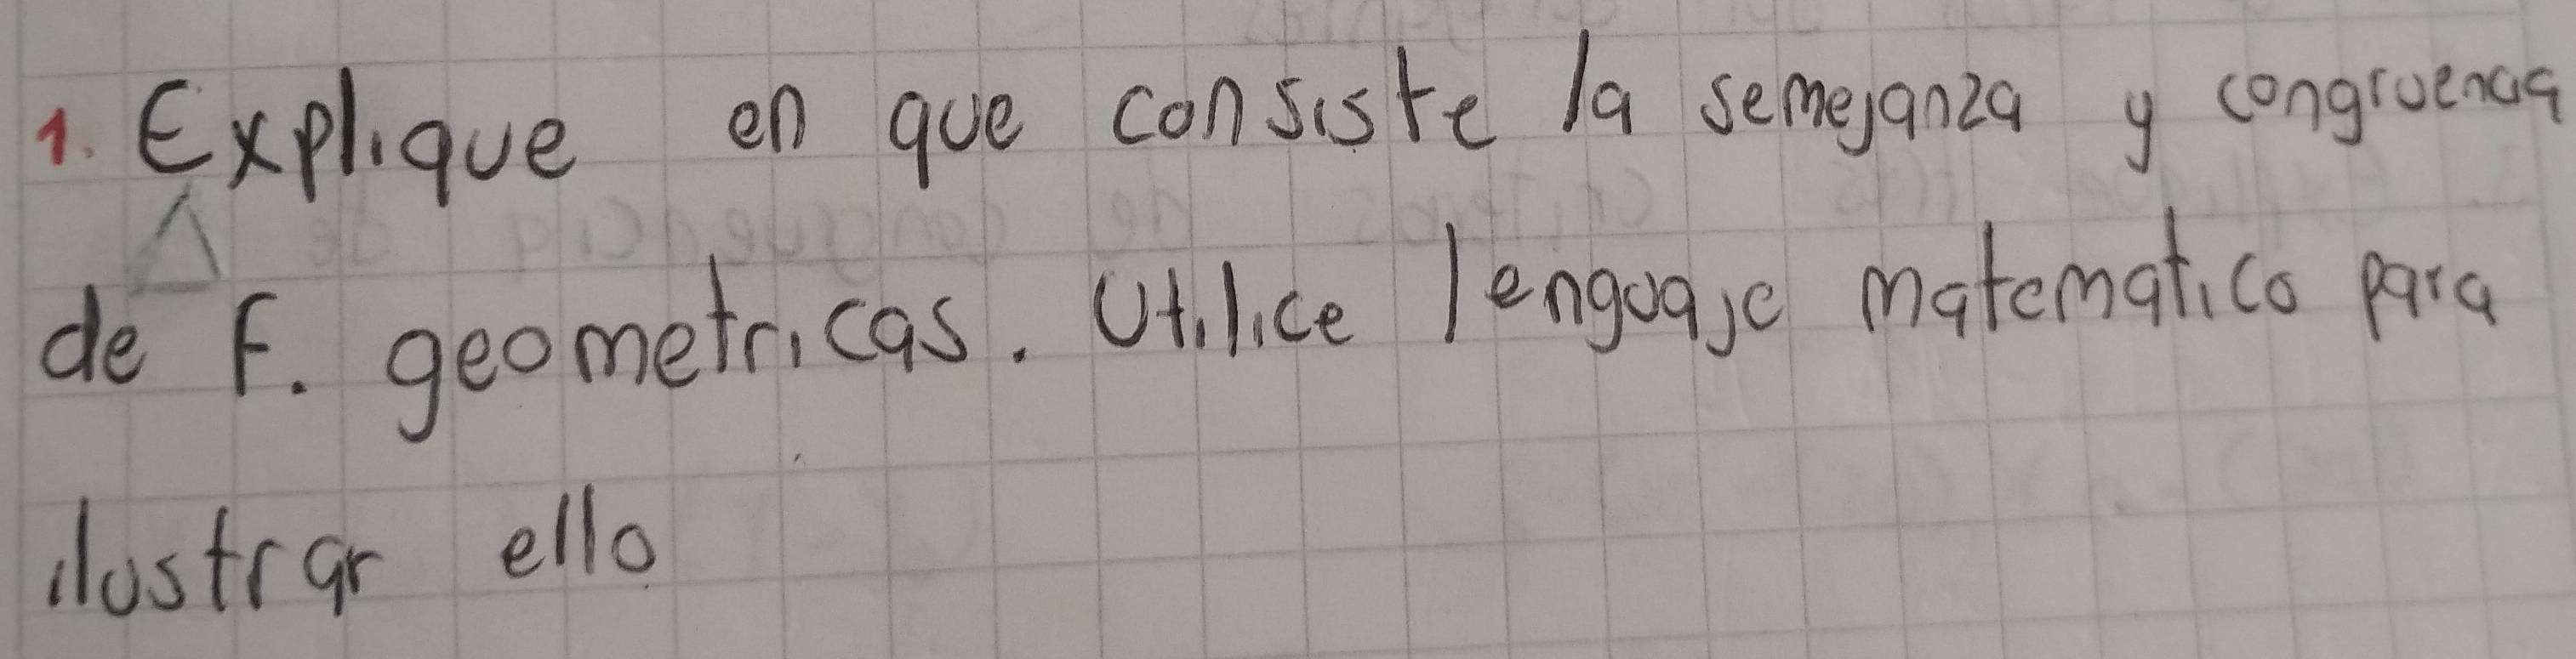 1. Explique en que consiste la semejanza y congruencia
de F. geometricas. Utilice lenguaje matematico para
ilustrar ello